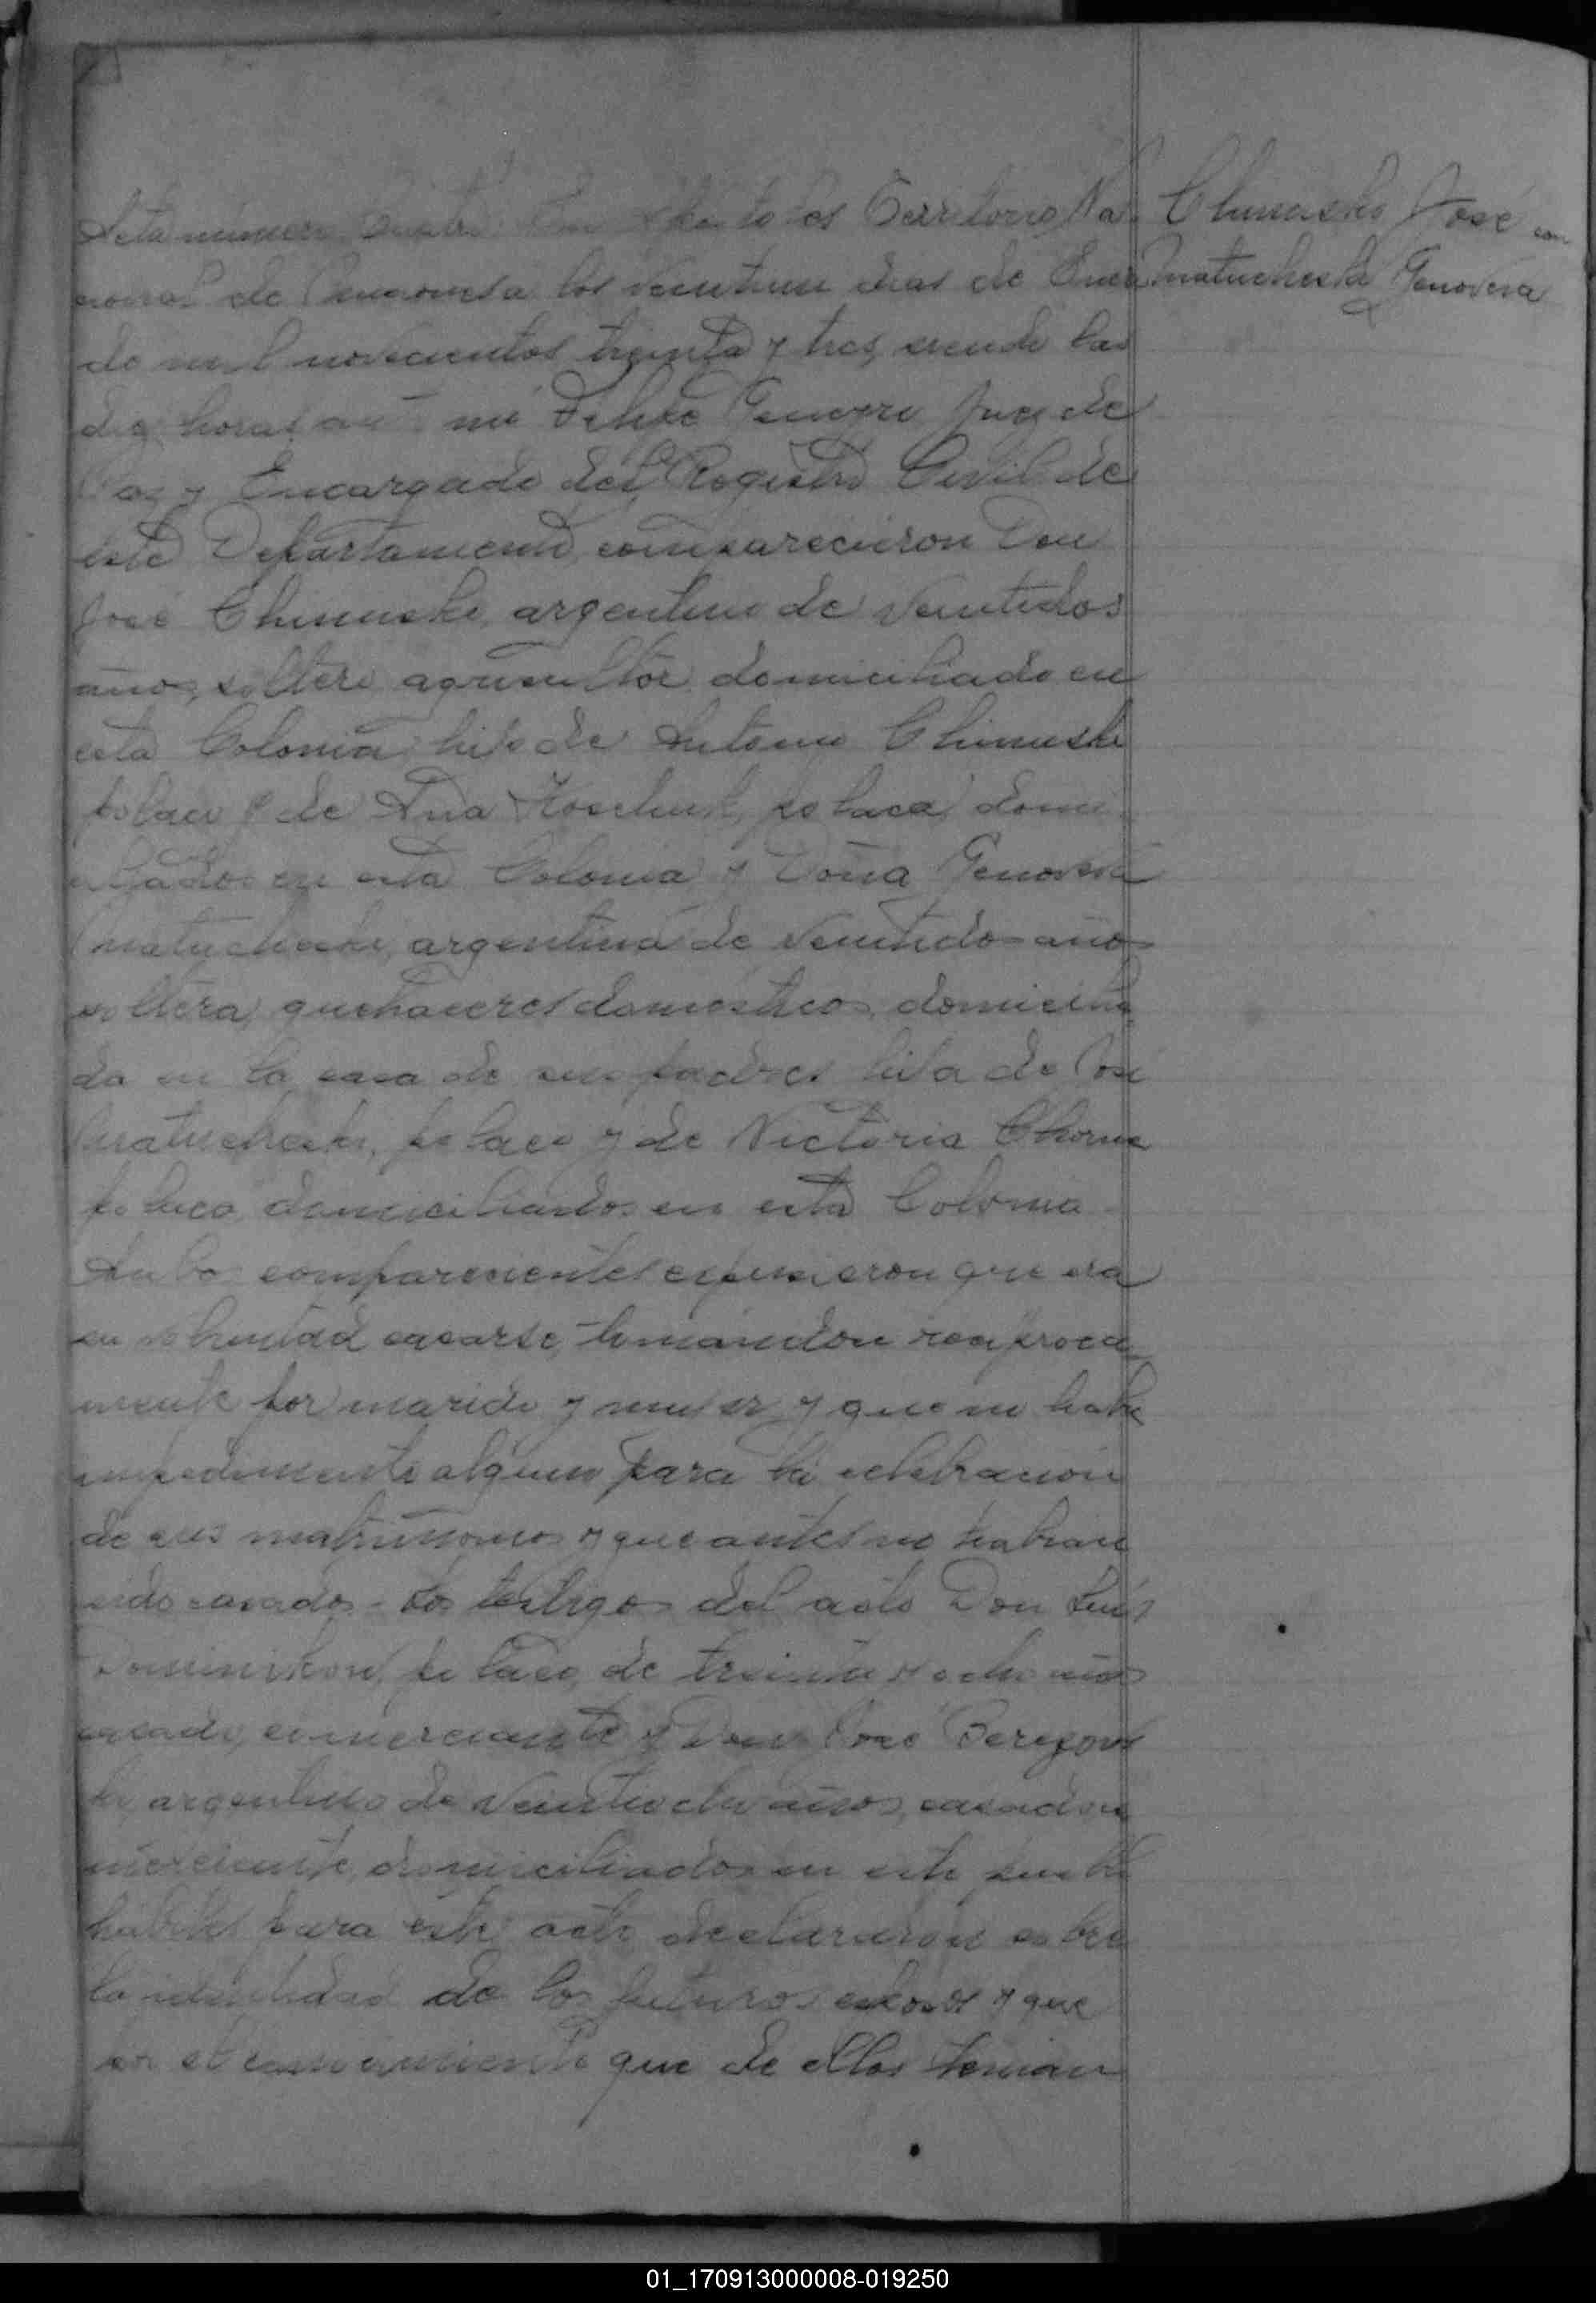 Acta número En Apóstoles Territorio Na
cional de Misiones a los veintiun dias de Enero
de mil novecientos treinta y tres, siendo las
diez horas ante mi Felipe Juez de
Paz y Encargado del Registro Civil de
este Departamento, comparecieron Don
José Chimuske, argentino de veintidos
años, soltero agricultor domiciliado en
esta Colonia hijo de Antonio Chimuski
polaco y de Ana polaca domi
ciliados en esta Colonia y Doña Genoveva
Matucheske, argentina de veintidos años
soltera, quehaceres domesticos, domicilia
da en la casa de sus padres hija de José
Matucheski, polaco y de Victoria Chorne
polaca domiciliados en esta Colonia
Ambos comparecientes expusieron que era
su voluntad casarse, tomandose reciproca
mente por marido y mujer y que no habia
impedimento alguno para la celebracion
de sus matrimonios y que antes no habian
sido casados - Los testigos del acto Don Luis
Dominikow, polaco, de treinta y ocho años
casado, comerciante y Don José Beregows
ki, argentino de veintiocho años, casado co
merciante domiciliados en este pueblo
habiles para este acto declararon sobre
la identidad de los futuros esposos y que
por el conocimiento que de ellos tenian
Chimuski José con
Matucheska Genoveva
01_170913000008-019250